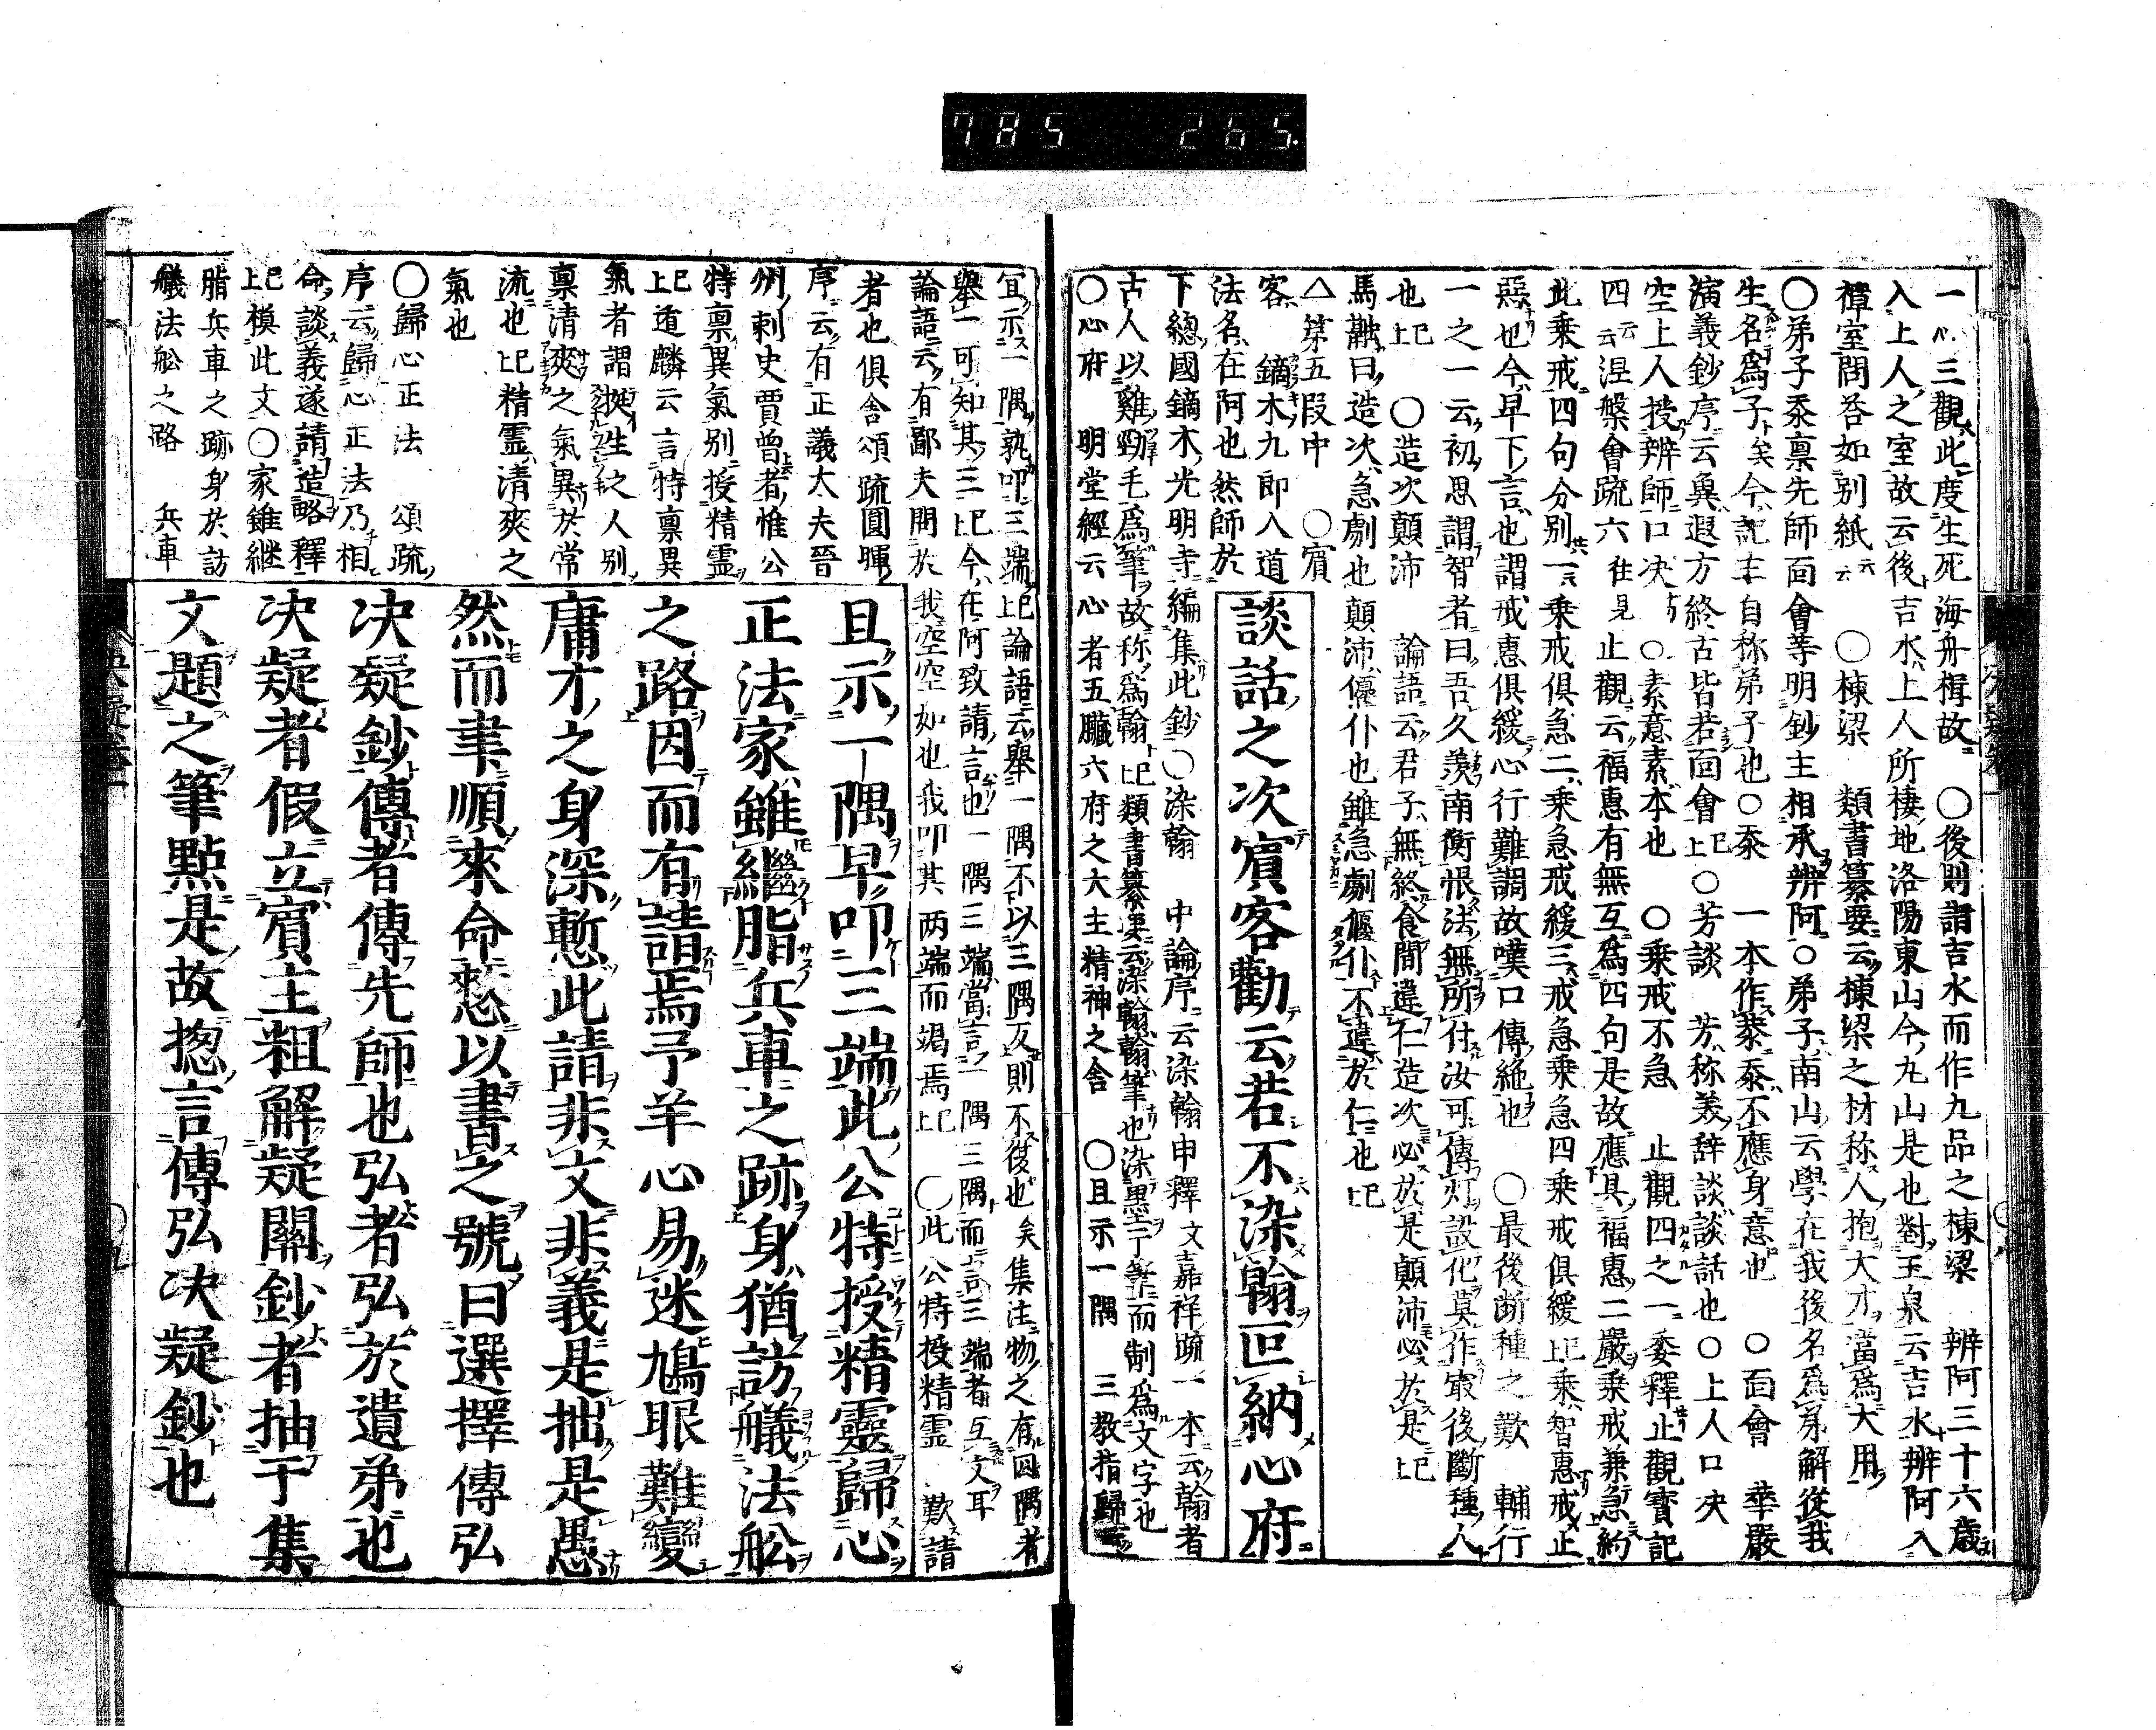 785 265
一心三觀此度生死海舟楫故 ○後則諸吉水而作九品之棟梁 辨阿三十六歳
入上人之室故云後吉水上人所棲地洛陽東山今丸山是也對玉泉云吉水辨阿入
禪室問答如別紙云 ○棟梁 類書纂要云棟梁之材称人抱大才當爲大用
○弟子忝禀先師面會等明鈔主相承辨阿○弟子南山云學在我後名爲弟解從我
生名爲子矣今記主自称弟子也○忝 一本作黍忝不應身意也 ○面會 華嚴
演義鈔序云奧遐方終古皆若面會上已○芳談 芳称美辞談談話也○上人口决
空上人授辨師口决 ○素意素本也 ○乗戒不急 止觀四之一委釋止觀實記
四云涅槃會疏六往見止觀云福惠有無互爲四句是故應具福惠二嚴乗戒兼急約
此乗戒四句分別一云乗戒俱急二乗急戒緩三戒急乗急四乗戒俱緩上已乗智惠戒止
惡也今早下言也謂戒惠俱緩心行難調故嘆口傳絶也 ○最後断種之歎 輔行
一之一云初思謂智者曰吾久羨南衡恨法無所付汝可傳灯設化莫作最後斷種人
也上已 ○造次顛沛 論語云君子無終食間違仁造次必於是顛沛必於是上已
馬融曰造次急劇也顛沛僵仆也雖急劇偃仆不違於仁也上已
△第五段中 ○賓
客 鏑木九郎入道
法名在阿也然師於
談話之次賓客勸云若不染翰叵納心府
下總國鏑木光明寺編集此鈔○染翰 中論序云染翰申釋文嘉祥疏一本云翰者
古人以雞勁毛爲筆故称爲翰上已類書纂要云染翰翰筆也染墨于筆而制爲文字也
○心府 明堂經云心者五臓六府之大主精神之舎 ○且示一隅 三教指歸云
宜示一隅孰叩三端上已論語云擧一隅不以三隅反則不復也矣集注物之有四隅者
擧一可知其三上已今在阿致請言也一隅三端當言一隅三隅而言三端者互文耳
論語云有鄙夫問於我空空如也我叩其两端而竭焉上已 ○此公特授精霊 歎請
者也俱舎頌疏圓暉
序云有正議大夫晉
州刺史賈曾者惟公
特禀異氣別授精霊
上已遁麟云言特禀異
氣者謂挺生之人別
禀清爽之氣異於常
流也上已精霊清爽之
氣也
○歸心正法 頌疏
序云歸心正法乃相
命談義遂請造略釋
上已模此文○家雖継
脂兵車之跡身於訪
艤法舩之路 兵車
且示一隅早叩三端此公特授精靈歸心
正法家雖繼脂兵車之跡身猶訪艤法舩
之路因而有請焉予羊心易迷鳩眼難變
庸才之身深慙此請非文非義是拙是愚
然而聿順來命憗以書之號曰選擇傳弘
决疑鈔傳者傳先師也弘者弘於遺弟也
决疑者假立賓主粗解疑關鈔者抽于集
文題之筆點是故揔言傳弘决疑鈔也